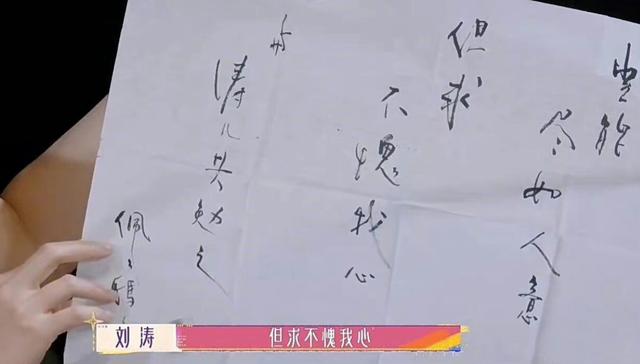 豈能
尽如人意
但求
不愧我心
与
涛儿共勉之
佩々媽
刘涛
但求不愧我心